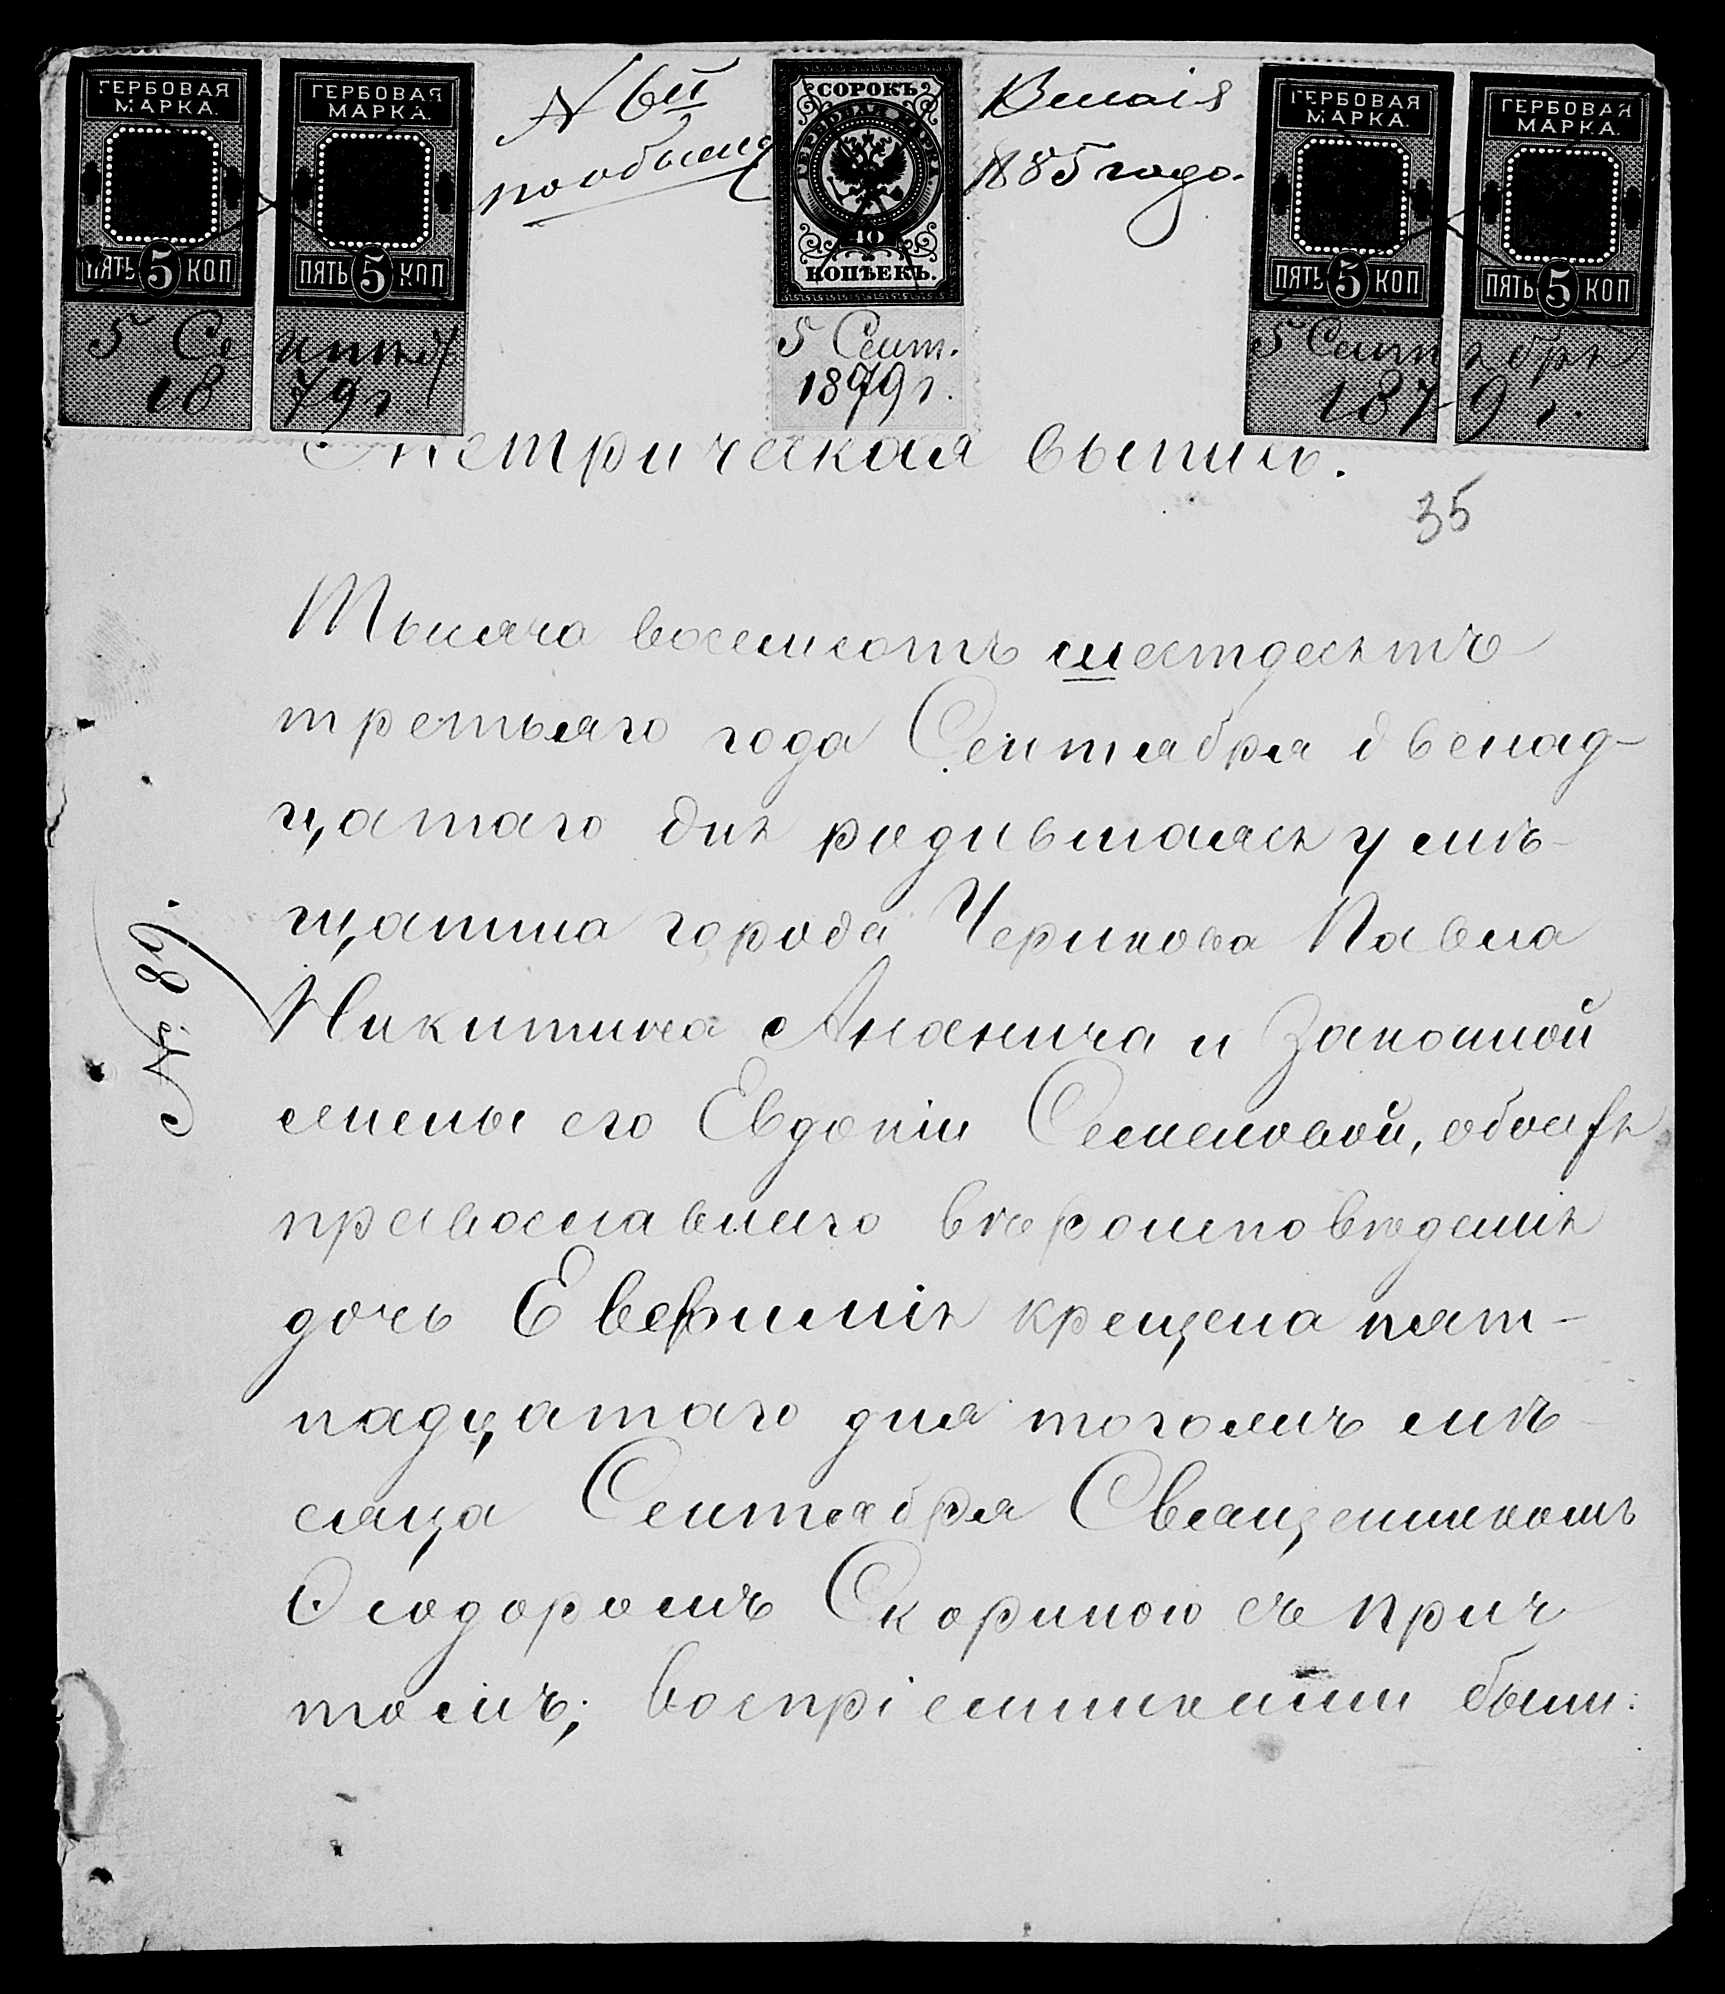 ГЕРБОВАЯ МАРКА.
ПЯТЬ 5 КОП
ГЕРБОВАЯ МАРКА.
ПЯТЬ 5 КОП
5 Сентяб
1879 г.
N 6й
по обыску
СОРОКЪ
ГЕРБОВАЯ МАРКА
40
КОПѢЕКЪ.
5 Сент.
1879 г.
1885 года.
ГЕРБОВАЯ МАРКА.
ПЯТЬ 5 КОП
ГЕРБОВАЯ МАРКА.
ПЯТЬ 5 КОП
5 Сентября
1879 г.
Метрическая выпись.
35
№. 89.
Тысяча восемьсотъ шестдесятъ
третьяго года Сентября двенад-
цатаго дня родившаяся у мѣ-
щанина города Черикова Павла
Никитина Ананича и Законной
жены его Евдокіи Семеновой, обоихъ
православнаго вѣроисповѣданія
дочь Евфимія крещена пят-
надцатаго дня тогожъ мѣ-
сяца Сентября Священникомъ
Ѳеодоромъ Скориною съ прич
томъ; воспріемниками были: